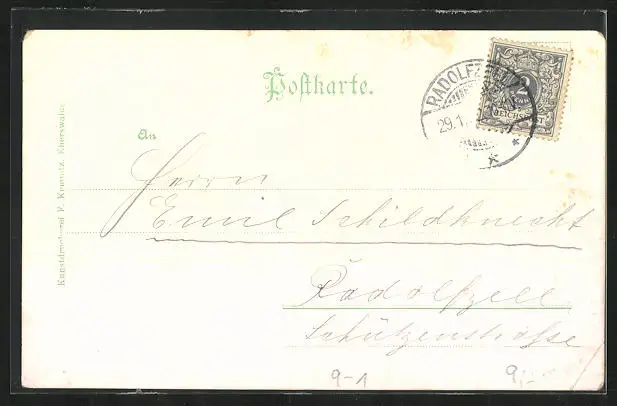 Postkarte.
RADOLFZELL
29.1
2
REICHSPOST
An
Herrn
Emil Schildknecht
Radolfzell
Schützenstraße
9-1
9,-
Kunstdruckerei
Eberswalde